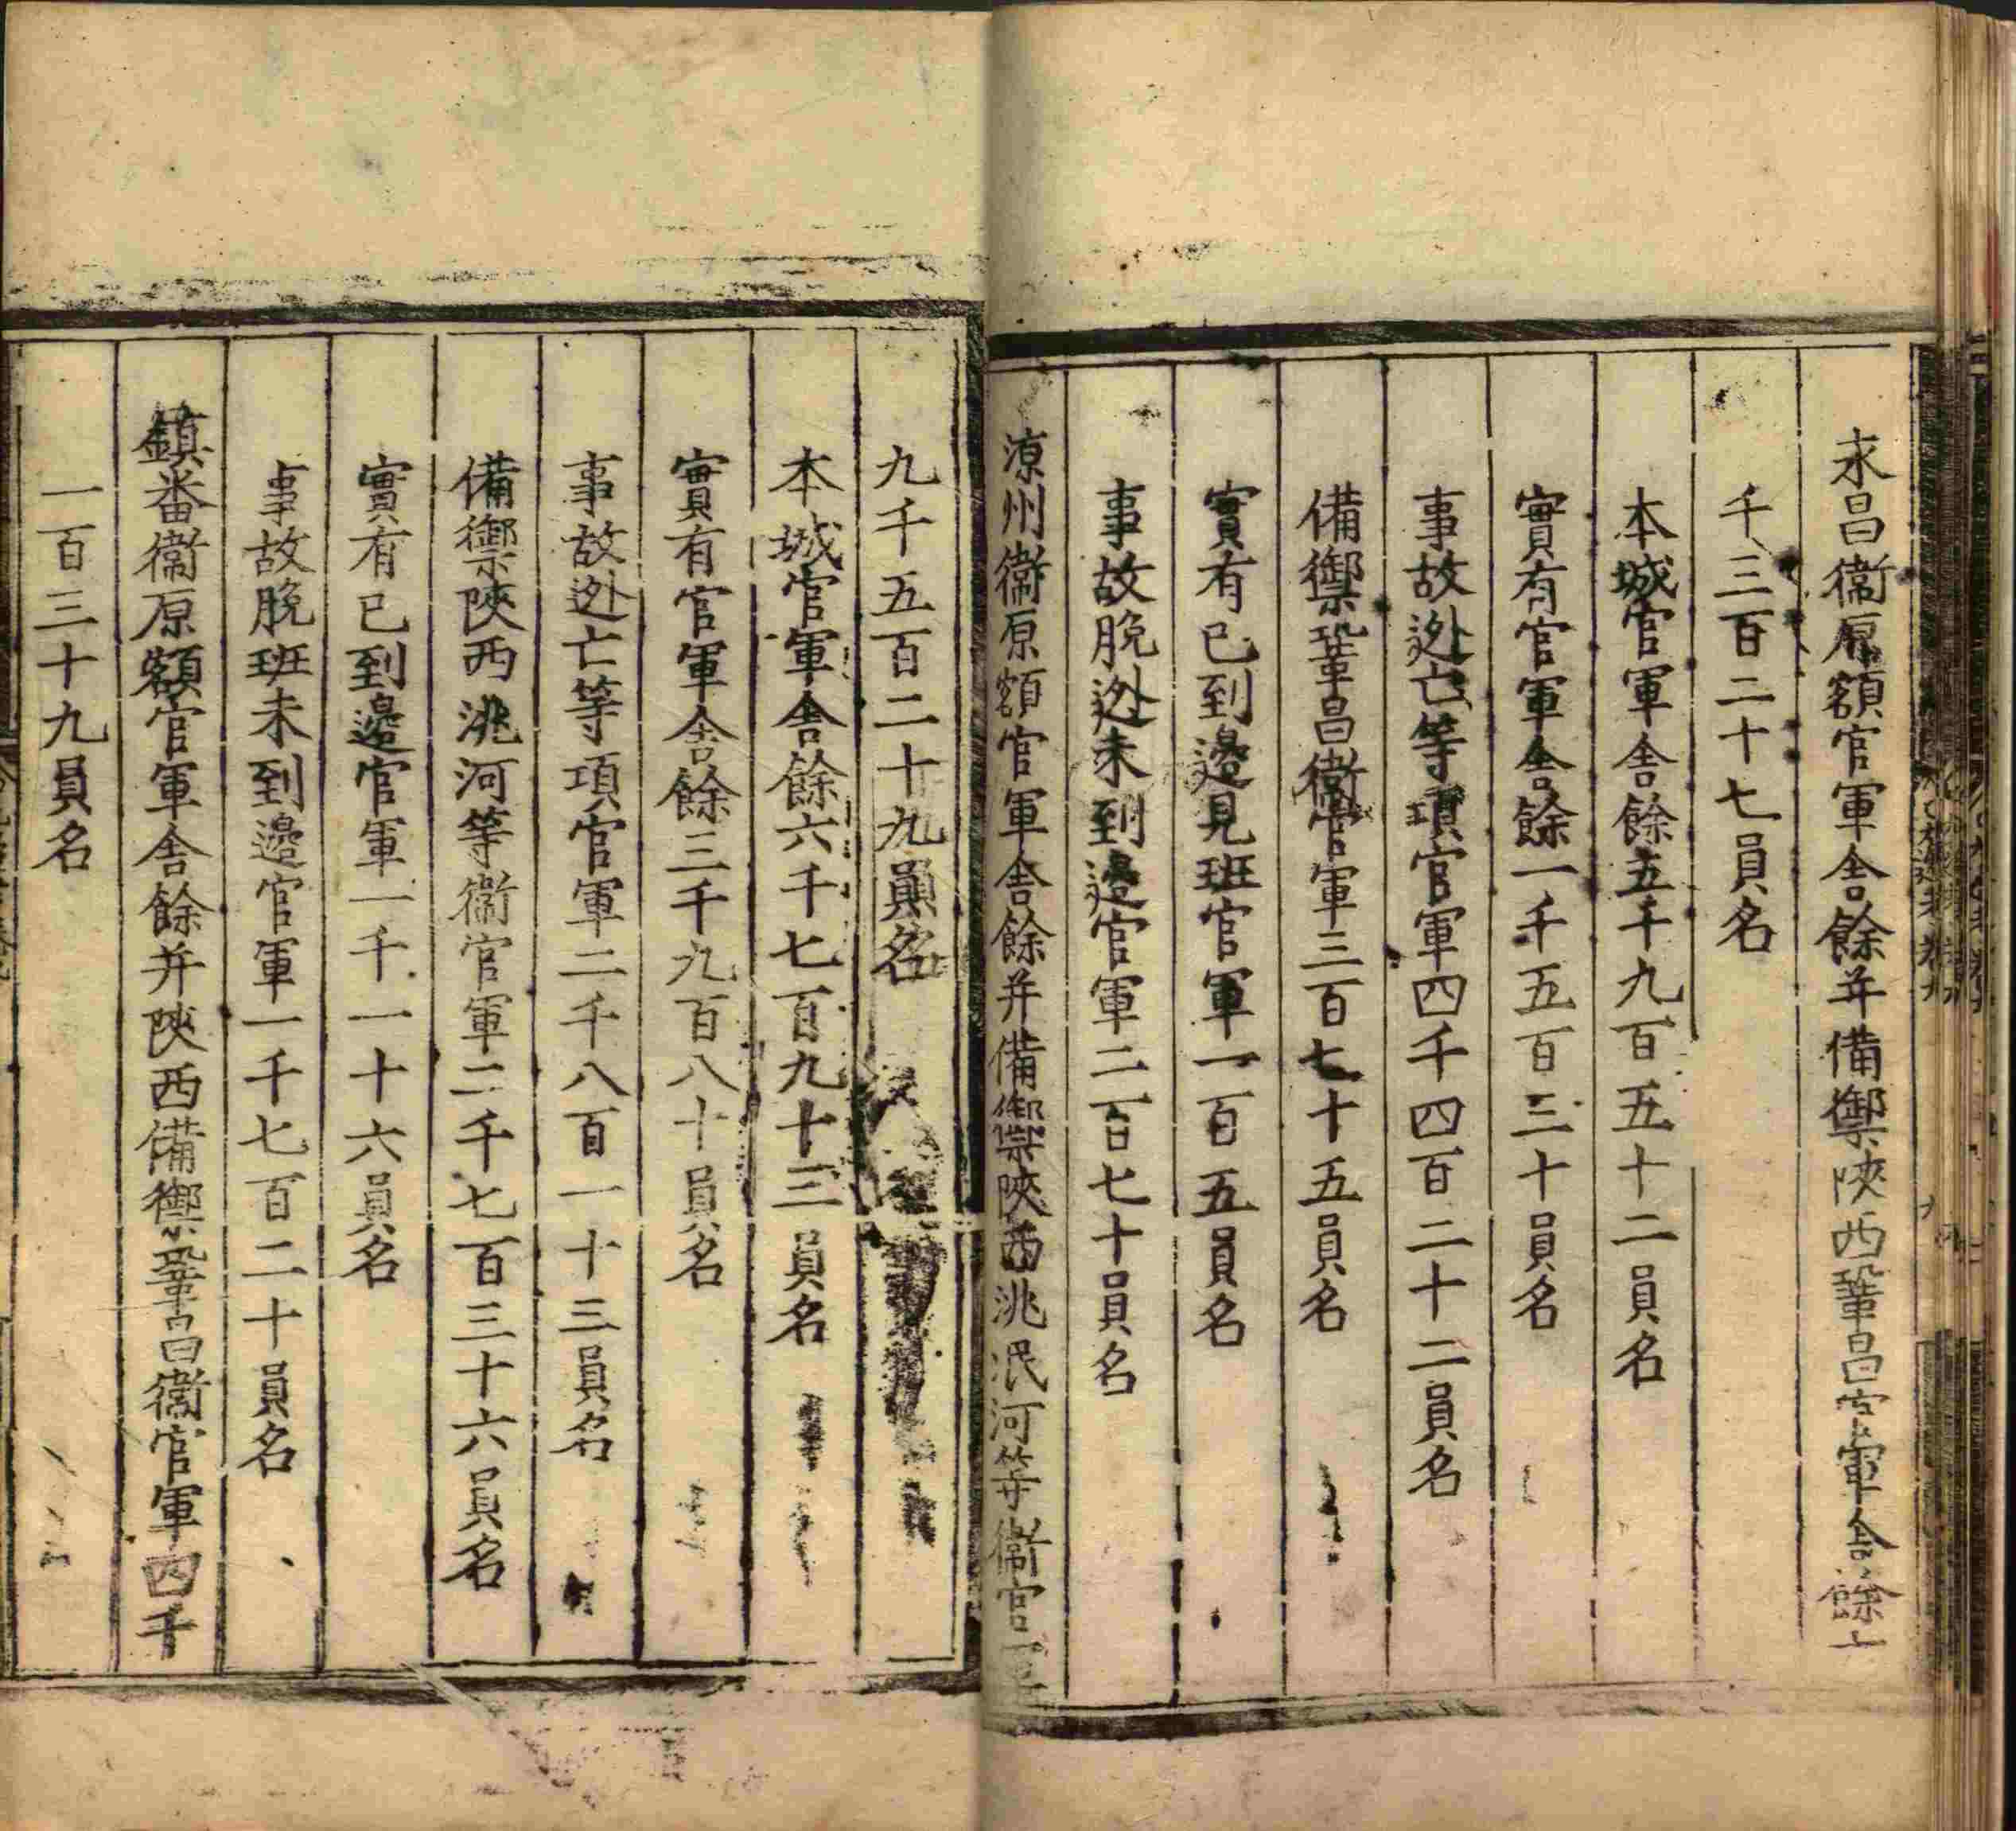 永昌衞原額官軍舎餘并備禦陝西鞏昌官軍舎餘六
千三百二十七員名
本城官軍舎餘五千九百五十二員名
實有官軍舎餘一千五百三十員名
事故迯亡等項官軍四千四百二十二員名
備禦鞏昌衞官軍三百七十五員名
實有已到邊見班官軍一百五員名
事故脫迯未到邊官軍二百七十員名
涼州衞原額官軍舎餘并備禦陝西洮岷河等衞官軍
九千五百二十九員名
本城官軍舎餘六千七百九十三員名
實有官軍舎餘三千九百八十員名
事故迯亡等項官軍二千八百一十三員名
備禦陝西洮河等衞官軍二千七百三十六員名
實有已到邊官軍一千一十六員名
事故脫班未到邊官軍一千七百二十員名
鎮番衞原額官軍舎餘并陝西備禦鞏昌衞官軍四千
一百三十九員名